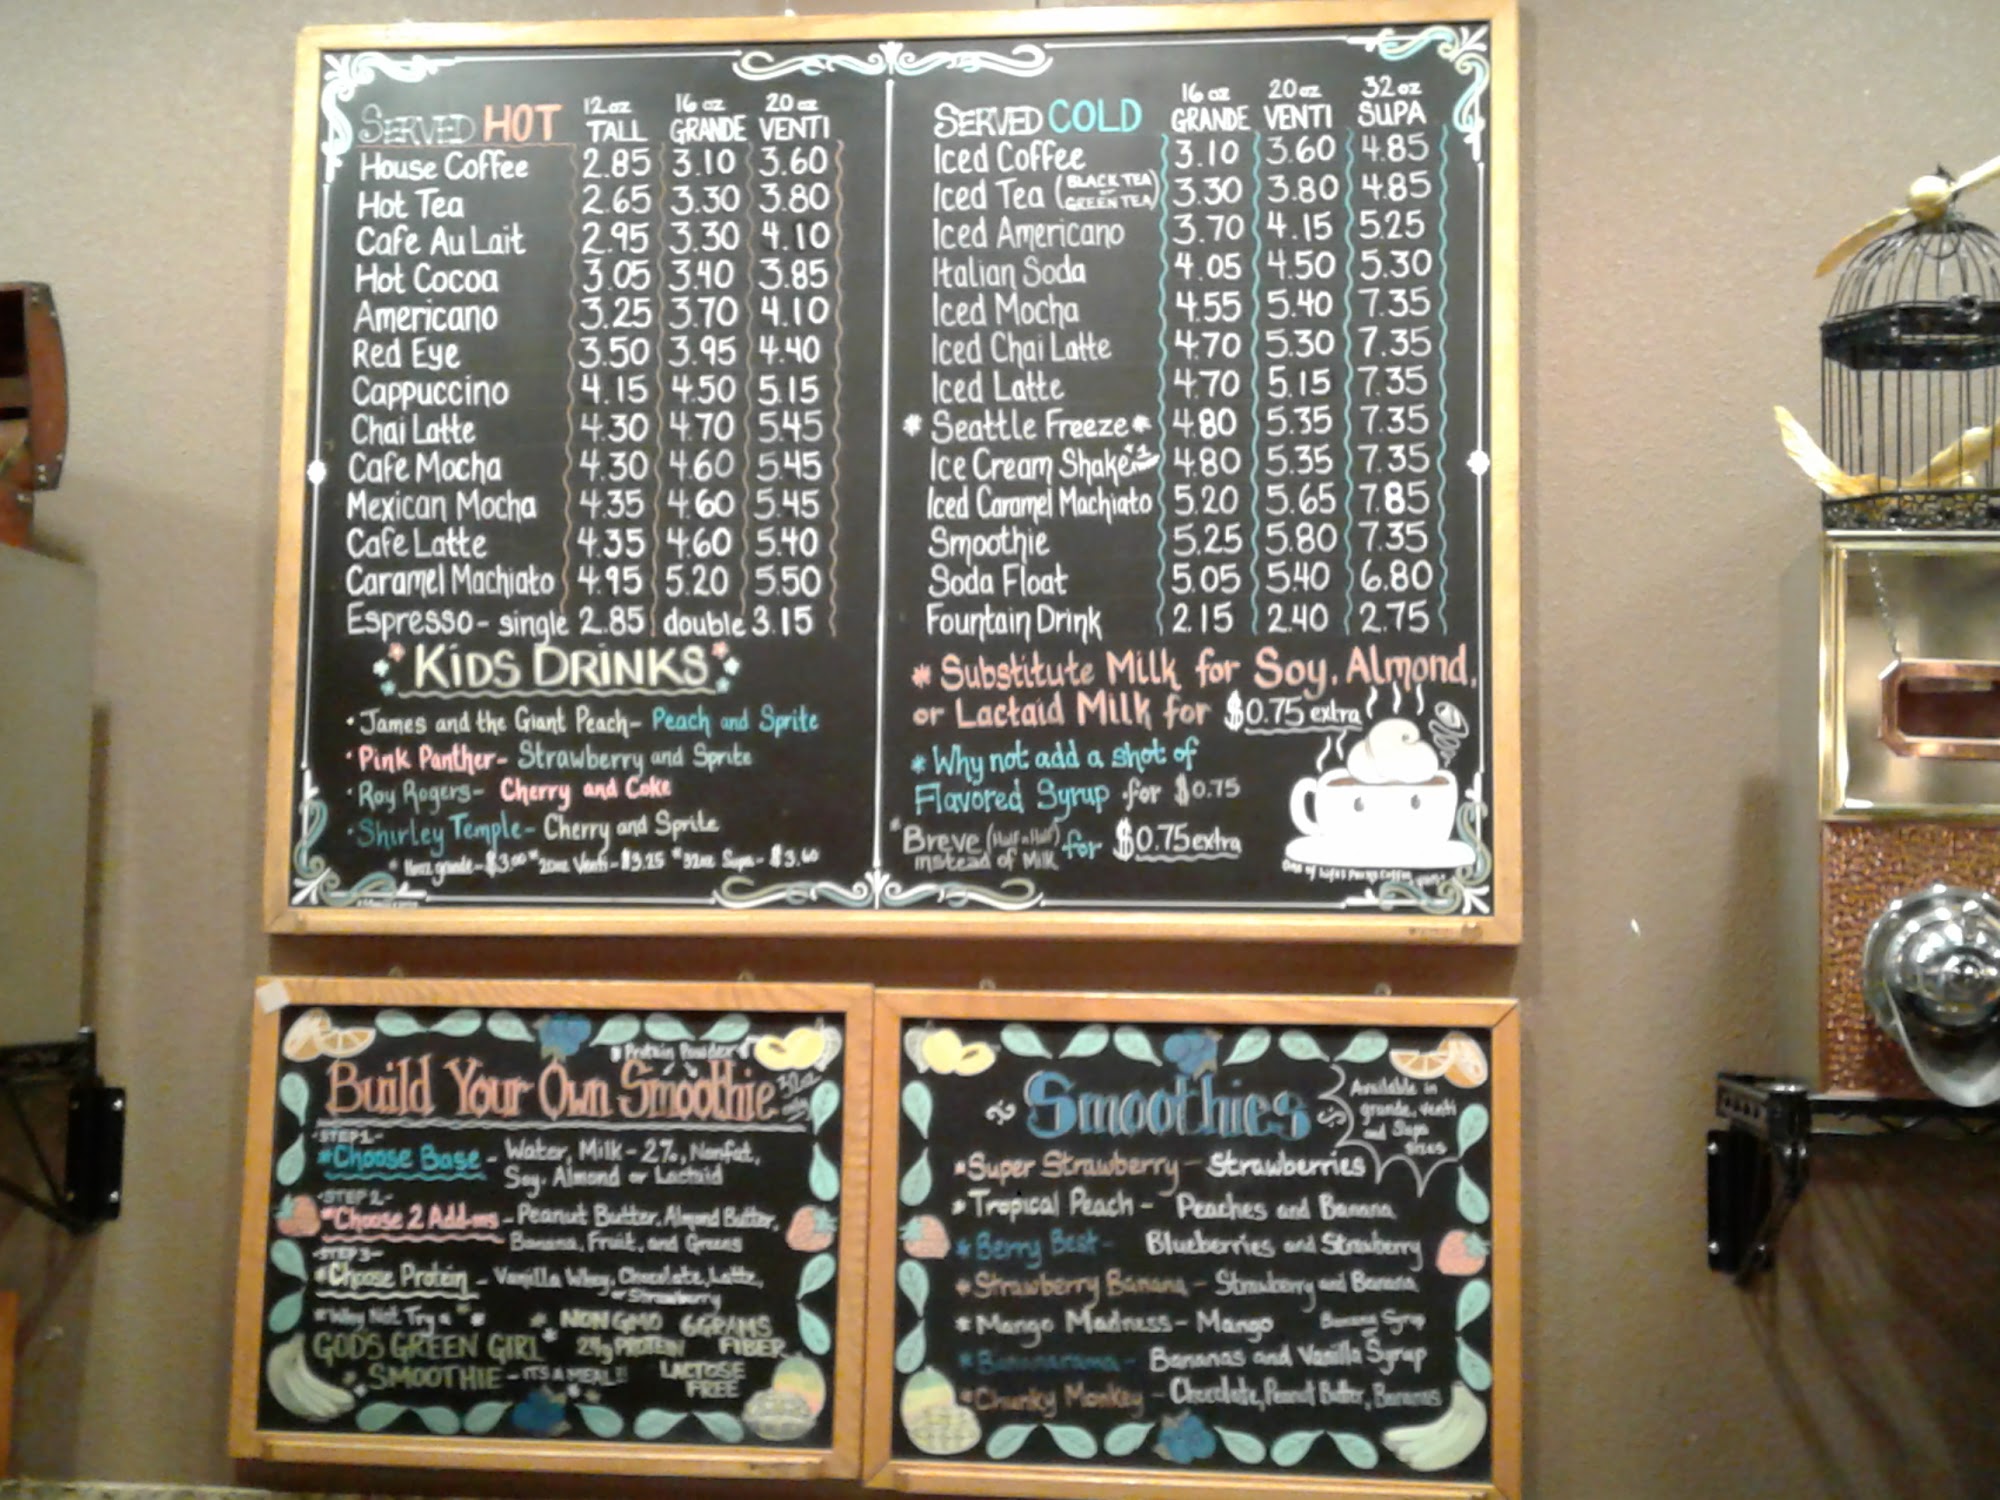 SERVED HOT 12 oz TALL 16 oz GRANDE 20 oz VENTI
House Coffee 2.85 3.10 3.60
Hot Tea 2.65 3.30 3.80
Cafe Au Lait 2.95 3.30 4.10
Hot Cocoa 3.05 3.40 3.85
Americano 3.25 3.70 4.10
Red Eye 3.50 3.95 4.40
Cappuccino 4.15 4.50 5.15
Chai Latte 4.30 4.70 5.45
Cafe Mocha 4.30 4.60 5.45
Mexican Mocha 4.35 4.60 5.45
Cafe Latte 4.35 4.60 5.40
Caramel Machiato 4.95 5.20 5.50
Espresso - single 2.85 double 3.15
KIDS DRINKS
• James and the Giant Peach - Peach and Sprite
• Pink Panther - Strawberry and Sprite
• Roy Rogers - Cherry and Coke
• Shirley Temple - Cherry and Sprite
* 16oz grande - $3.00 * 20oz Venti - $3.25 * 32oz Supa - $3.60
SERVED COLD 16 oz GRANDE 20 oz VENTI 32 oz SUPA
Iced Coffee 3.10 3.60 4.85
Iced Tea (BLACK TEA or GREEN TEA) 3.30 3.80 4.85
Iced Americano 3.70 4.15 5.25
Italian Soda 4.05 4.50 5.30
Iced Mocha 4.55 5.40 7.35
Iced Chai Latte 4.70 5.30 7.35
Iced Latte 4.70 5.15 7.35
* Seattle Freeze * 4.80 5.35 7.35
Ice Cream Shake 4.80 5.35 7.35
Iced Caramel Machiato 5.20 5.65 7.85
Smoothie 5.25 5.80 7.35
Soda Float 5.05 5.40 6.80
Fountain Drink 2.15 2.40 2.75
* Substitute Milk for Soy, Almond,
or Lactaid Milk for $0.75 extra
* Why not add a shot of
Flavored Syrup for $0.75
* Breve (Half n Half) for $0.75 extra
instead of Milk
* Protein Powder
Build Your Own Smoothie 32oz only
STEP 1-
* Choose Base - Water, Milk - 2%, Nonfat,
Soy, Almond or Lactaid
STEP 2-
* Choose 2 Add-ins - Peanut Butter, Almond Butter,
Banana, Fruit, and Greens
STEP 3-
* Choose Protein - Vanilla Whey, Chocolate, Latte,
or Strawberry
* Why Not Try a * * NON GMO 6 GRAMS
GODS GREEN GIRL * PROTEIN FIBER
SMOOTHIE - ITS A MEAL!! LACTOSE
FREE
Smoothies
Available in
grande, venti
and Supa
sizes
* Super Strawberry - Strawberries
* Tropical Peach - Peaches and Banana
* Berry Best - Blueberries and Strawberry
* Strawberry Banana - Strawberry and Banana
* Mango Madness - Mango Banana Syrup
* Bananarama - Bananas and Vanilla Syrup
* Chunky Monkey - Chocolate, Peanut Butter, Bananas